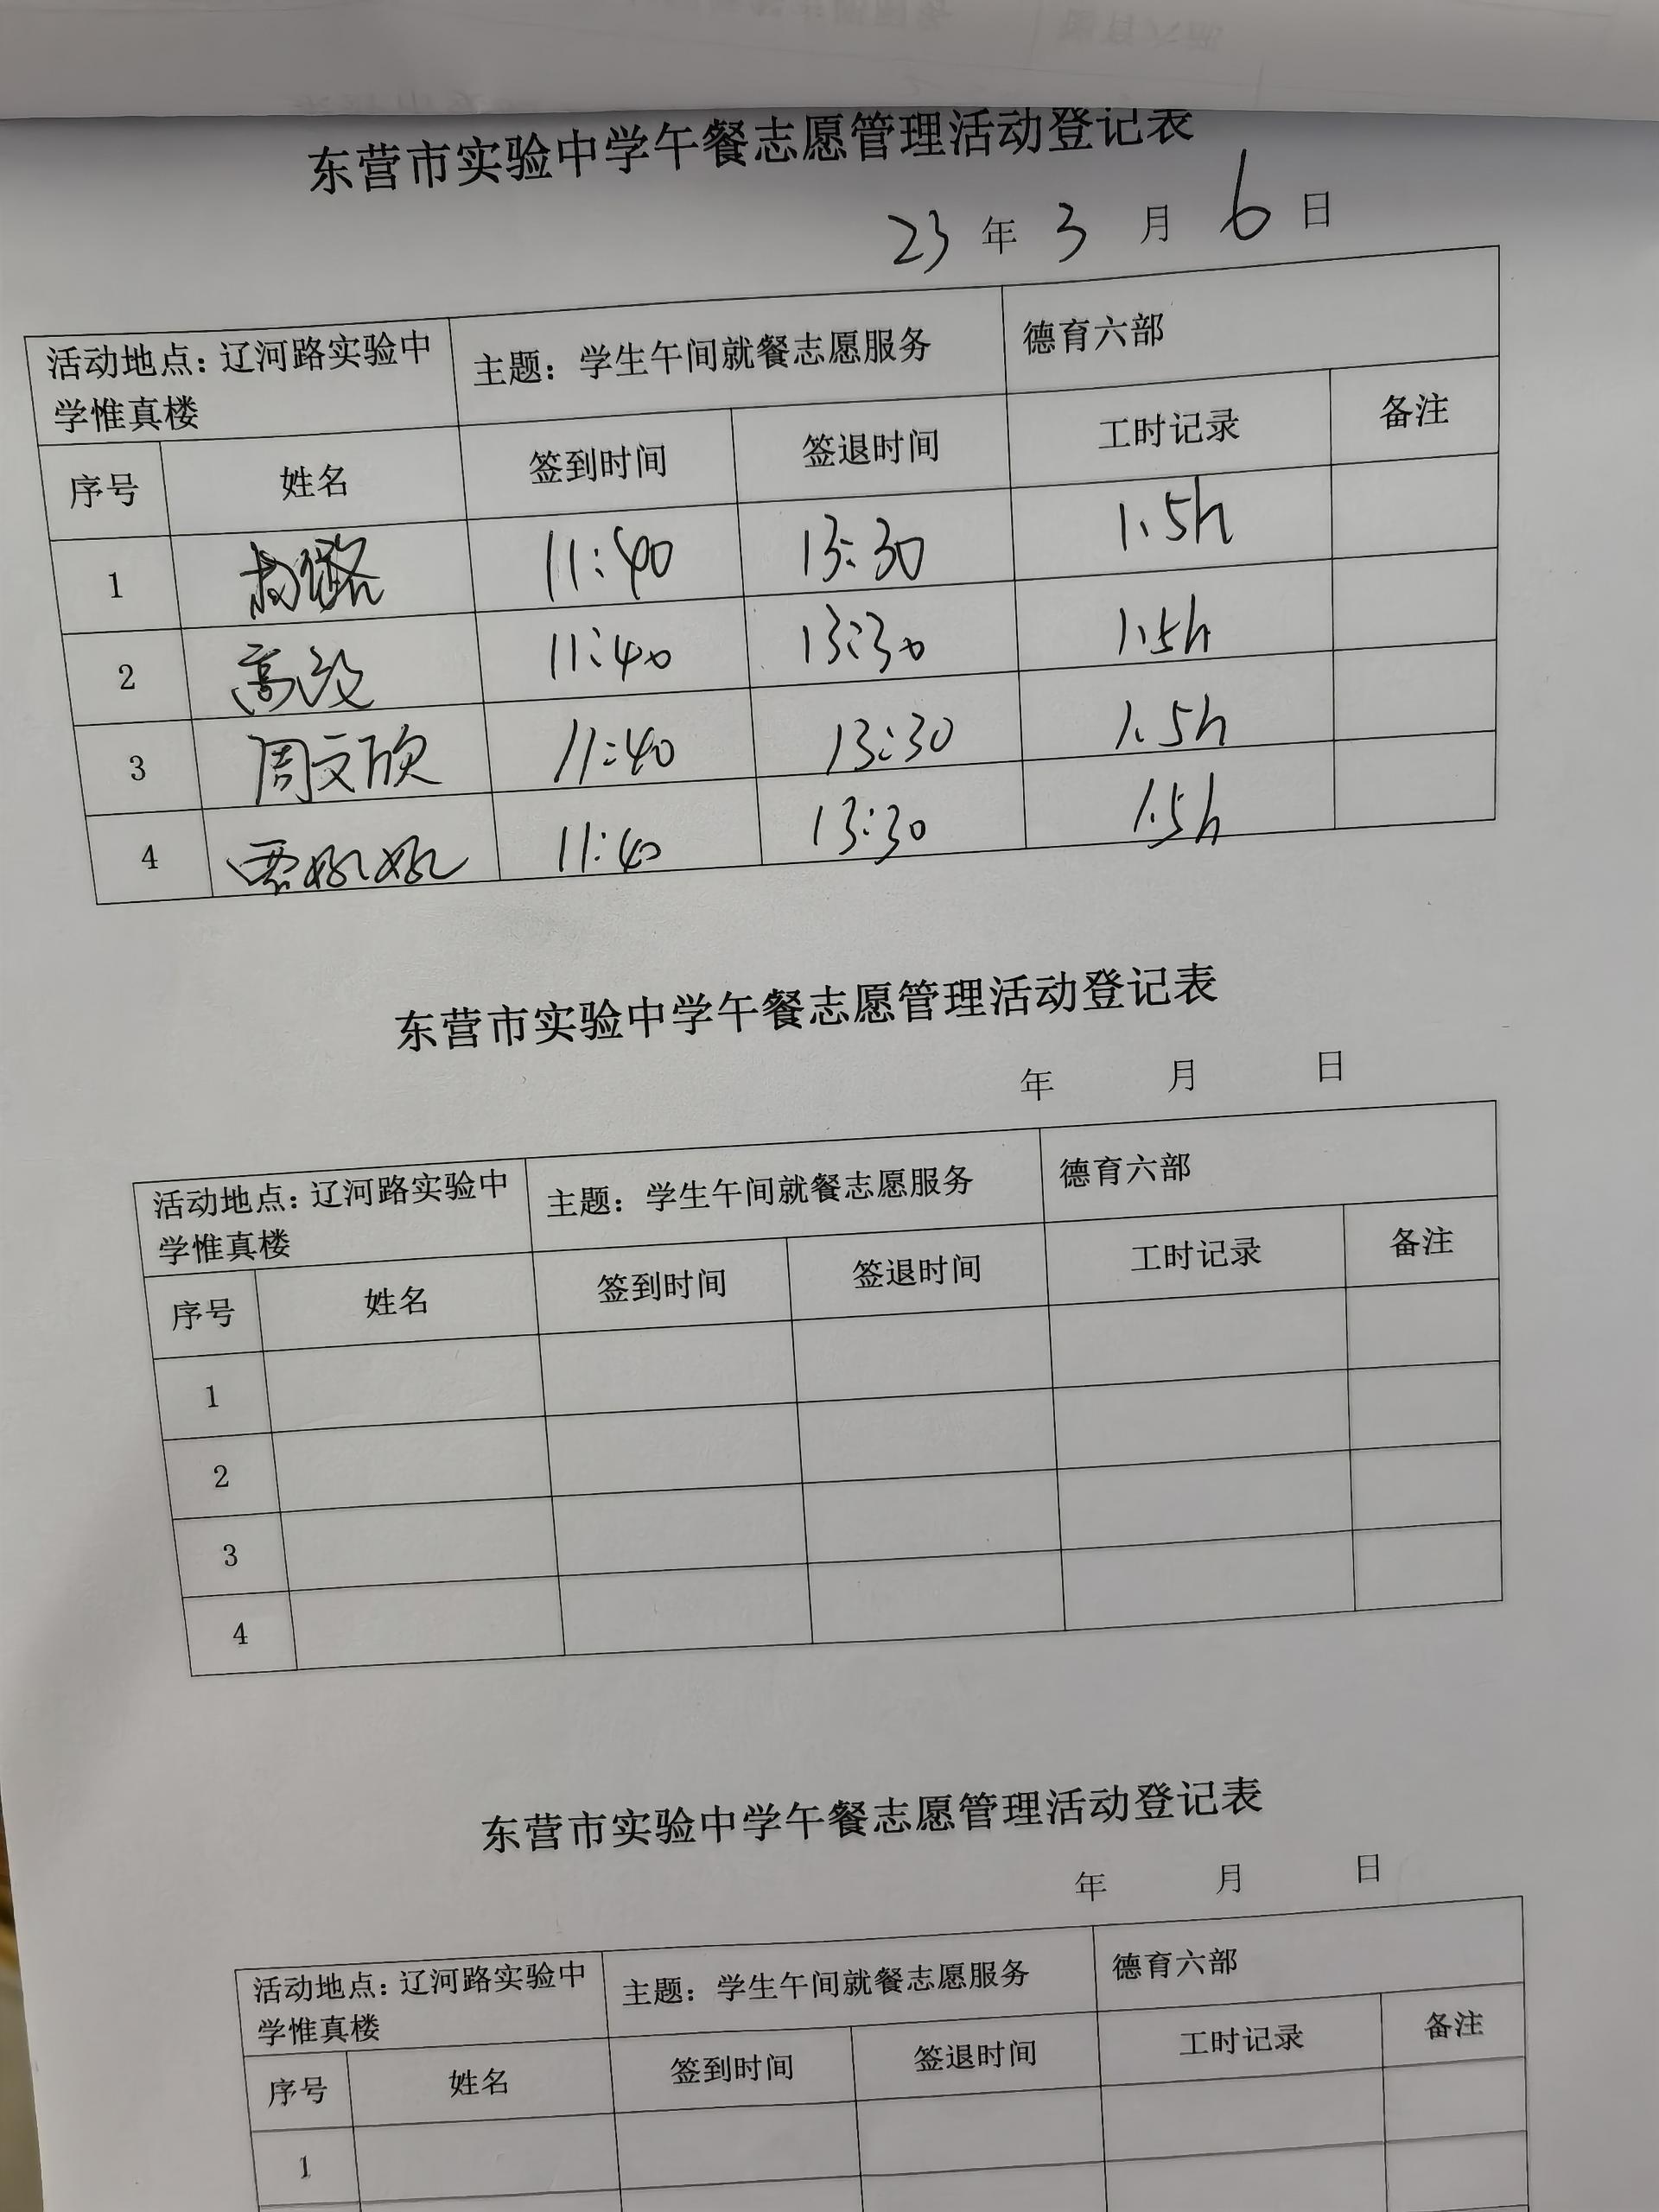 东营市实验中学午餐志愿管理活动登记表
23 年 3 月 6 日
活动地点：辽河路实验中学惟真楼 主题：学生午间就餐志愿服务 德育六部
序号 姓名 签到时间 签退时间 工时记录 备注
1 11:40 13:30 1.5h
2 11:40 13:30 1.5h
3 周文欣 11:40 13:30 1.5h
4 11:40 13:30 1.5h
东营市实验中学午餐志愿管理活动登记表
年 月 日
活动地点：辽河路实验中学惟真楼 主题：学生午间就餐志愿服务 德育六部
序号 姓名 签到时间 签退时间 工时记录 备注
1
2
3
4
东营市实验中学午餐志愿管理活动登记表
年 月 日
活动地点：辽河路实验中学惟真楼 主题：学生午间就餐志愿服务 德育六部
序号 姓名 签到时间 签退时间 工时记录 备注
1